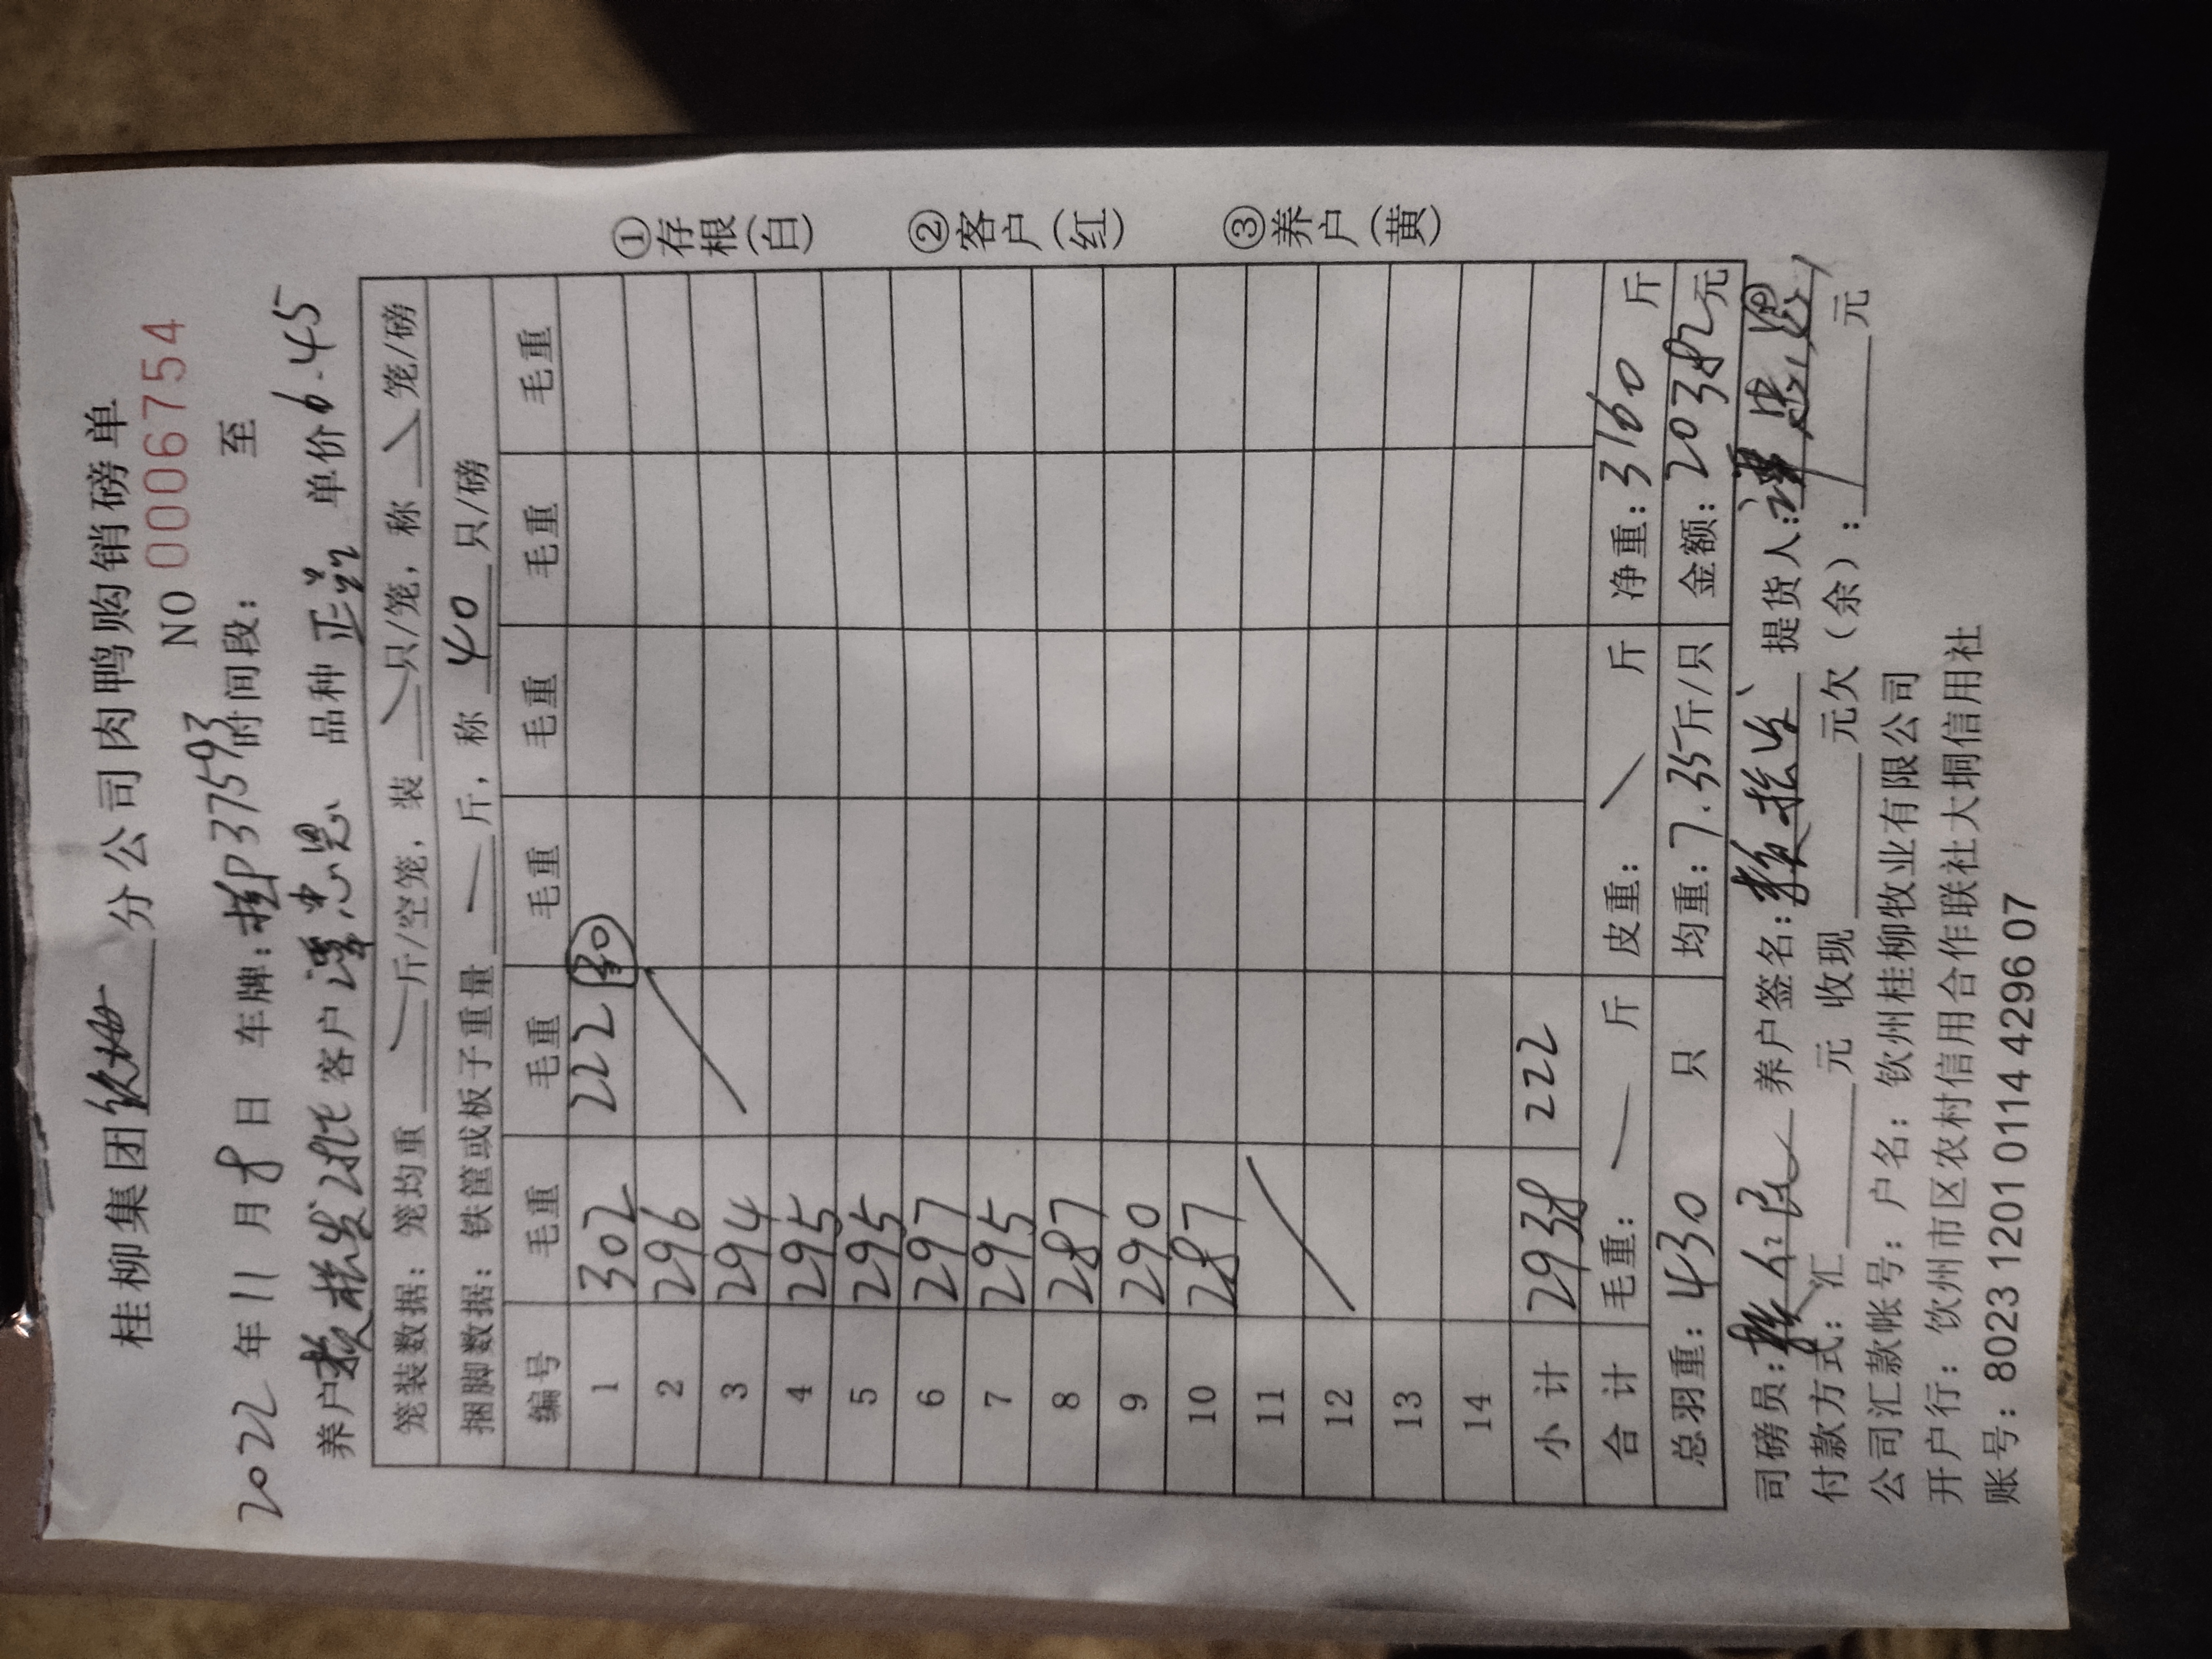 桂柳集团 钦州 分公司肉鸭购销磅单
NO 0006754
2022 年 11 月 8 日 车牌: 桂P37593 时间段: 至
养户 客户 谭忠恩 品种 正 单价 6.45
笼装数据: 笼均重 斤/空笼, 装 只/笼, 称 笼/磅
捆脚数据: 铁筐或板子重量 斤, 称 40 只/磅
编号 毛重 毛重 毛重 毛重 毛重 毛重
1 302 222 30
2 296
3 294
4 295
5 295
6 297
7 295
8 287
9 290
10 287
11
12
13
14
小计 2938 222
合计 毛重: 斤 皮重: 斤 净重: 3160 斤
总羽重: 430 只 均重: 7.35 斤/只 金额: 20382 元
司磅员: 养户签名: 提货人: 谭忠恩
付款方式: 汇 元 收现 元欠(余): 元
公司汇款帐号: 户名: 钦州桂柳牧业有限公司
开户行: 钦州市区农村信用合作联社大垌信用社
账号: 8023 1201 0114 4296 07
①存根(白) ②客户(红) ③养户(黄)